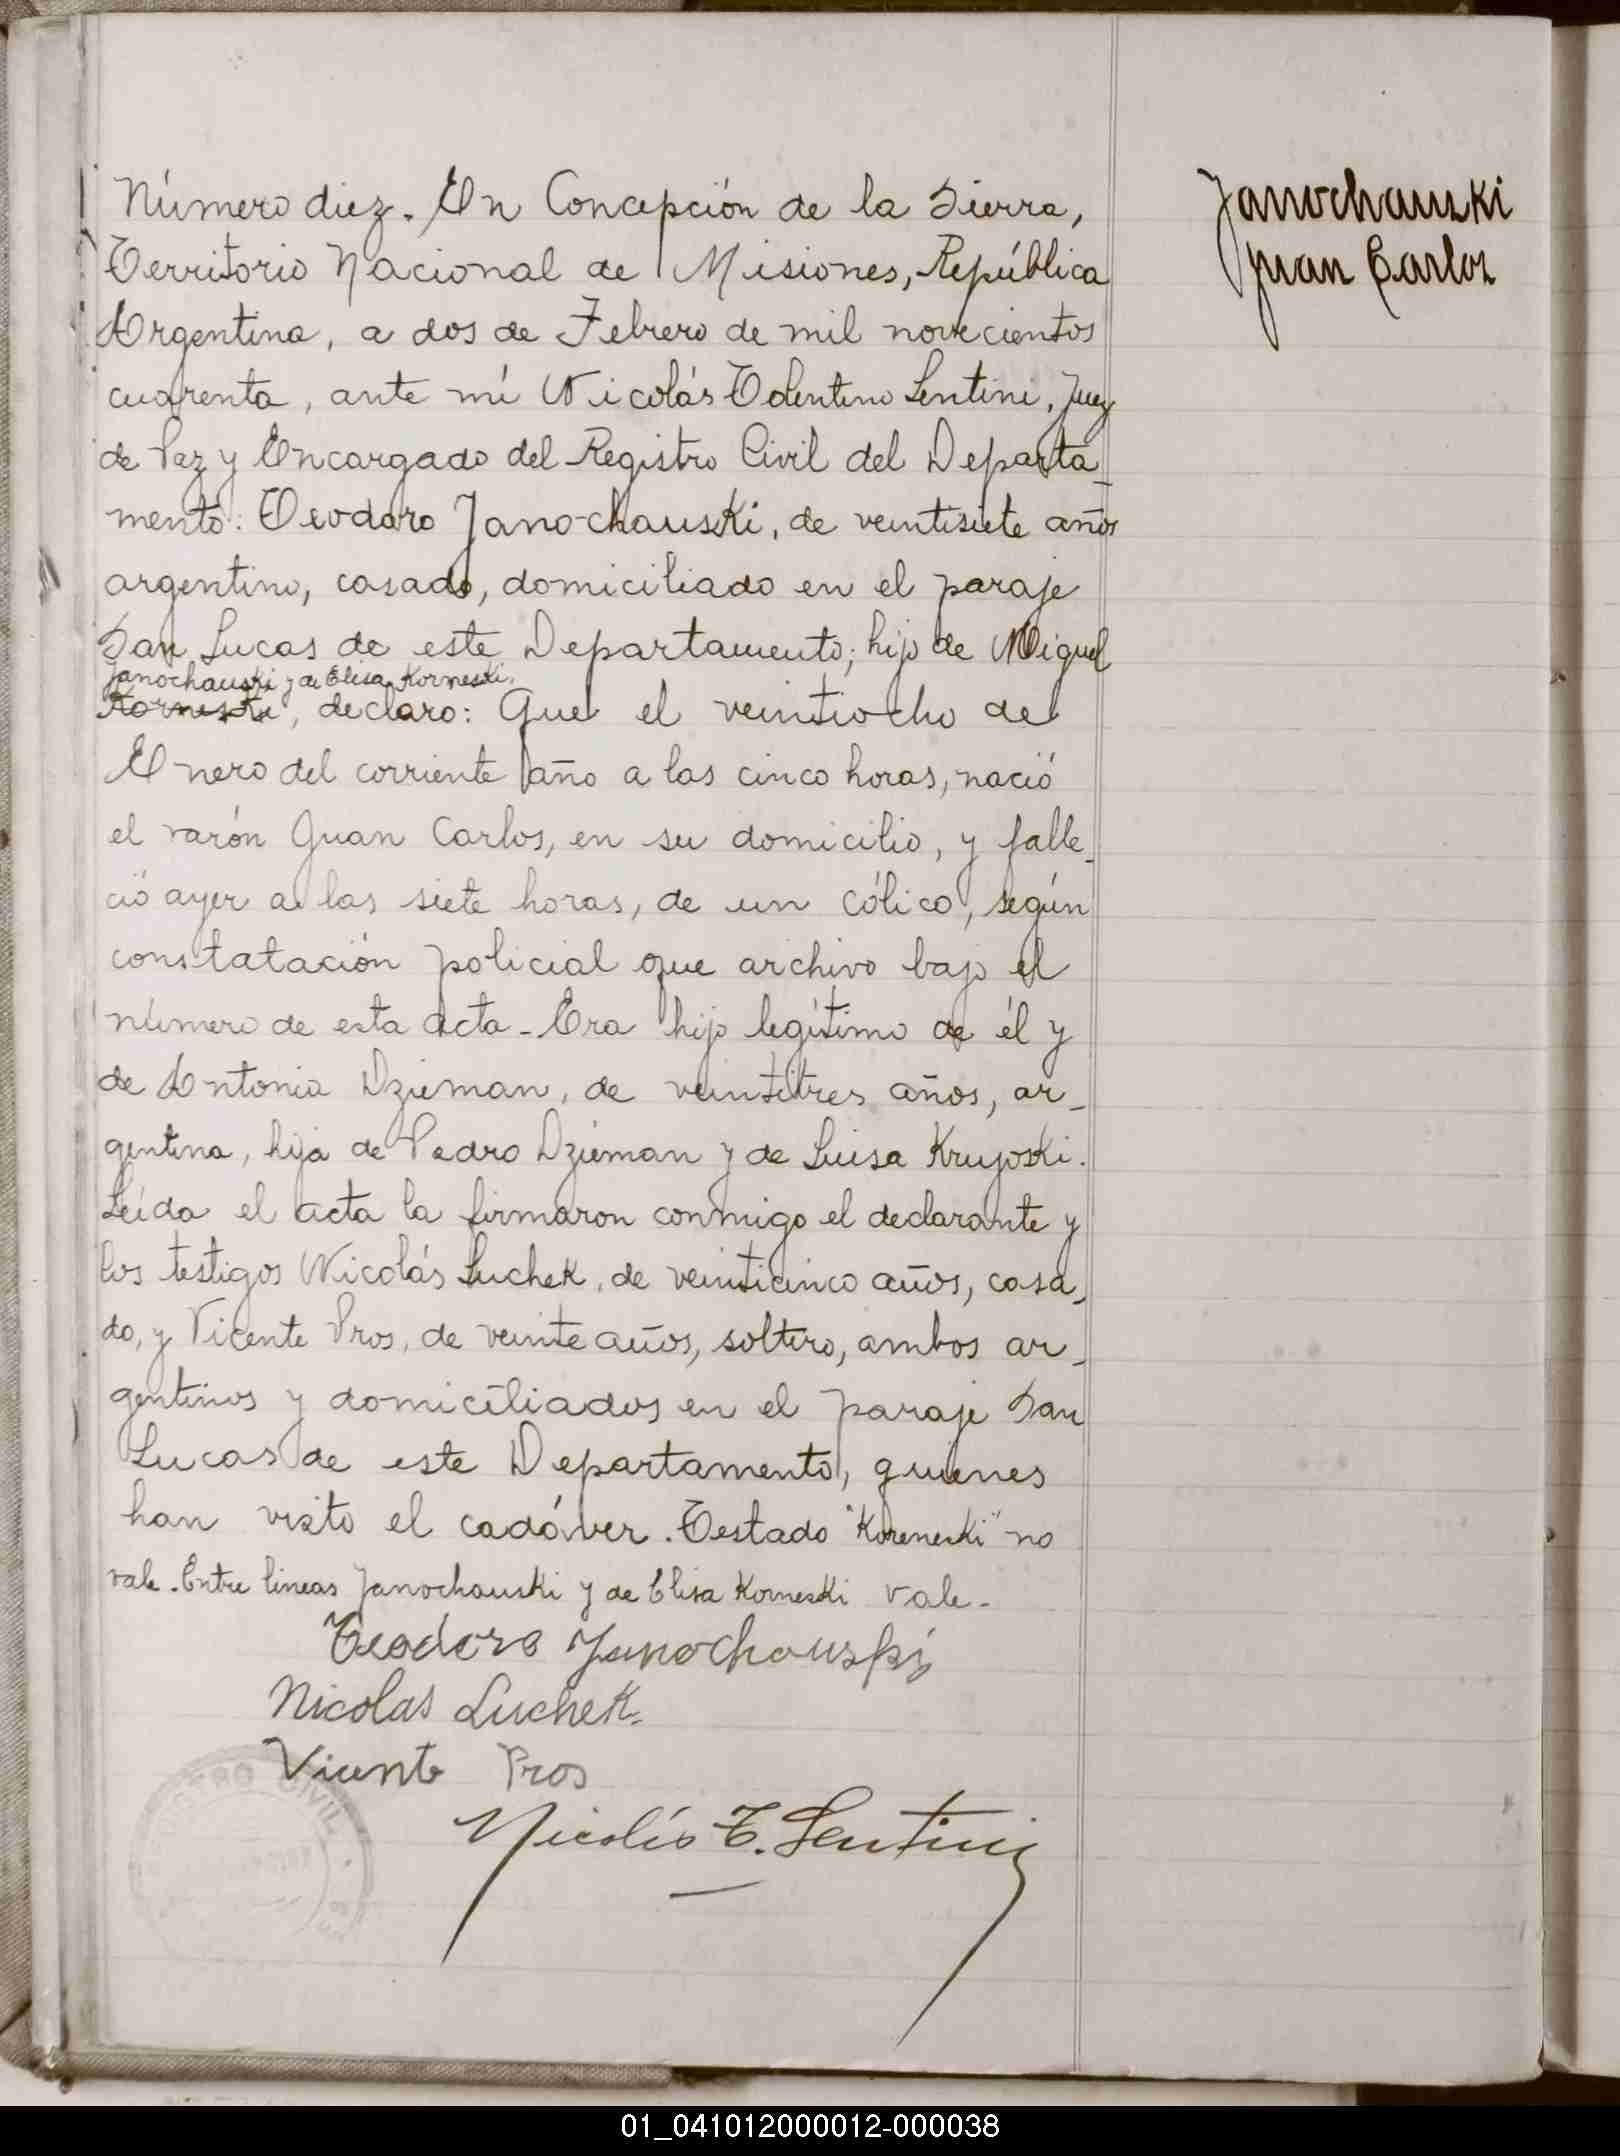 Número diez. En Concepción de la Sierra,
Territorio Nacional de Misiones, República
Argentina, a dos de Febrero de mil novecientos
cuarenta, ante mí Nicolás Tolentino Sentini, Juez
de Paz y Encargado del Registro Civil del Departa_
mento: Teodoro Janochauski, de veintisiete años
argentino, casado, domiciliado en el paraje
San Lucas de este Departamento; hijo de Miguel
Janochauski y de Elisa Korneski.
Korneski, declaro: Que el veintiocho de
Enero del corriente año a las cinco horas, nació
el varón Juan Carlos, en su domicilio, y falle_
ció ayer a las siete horas, de un cólico, según
constatación policial que archivo bajo el
número de esta acta - Era hijo legítimo de él y
de Antonia Dzieman, de veintitres años, ar_
gentina, hija de Pedro Dzieman y de Luisa Krujoski.
Leída el acta la firmaron conmigo el declarante y
los testigos Nicolás Luchek, de veinticinco años, casa_
do, y Vicente Pros, de veinte años, soltero, ambos ar_
gentinos y domiciliados en el paraje San
Lucas de este Departamento, quienes
han visto el cadáver. Testado "Koreneski" no
vale. Entre lineas Janochauski y de Elisa Korneski vale-
Teodoro Janochouski
Nicolas Luchek.
Vicente Pros
Nicolás T. Sentini
Janochauski
Juan Carlos
REGISTRO CIVIL
01_041012000012-000038